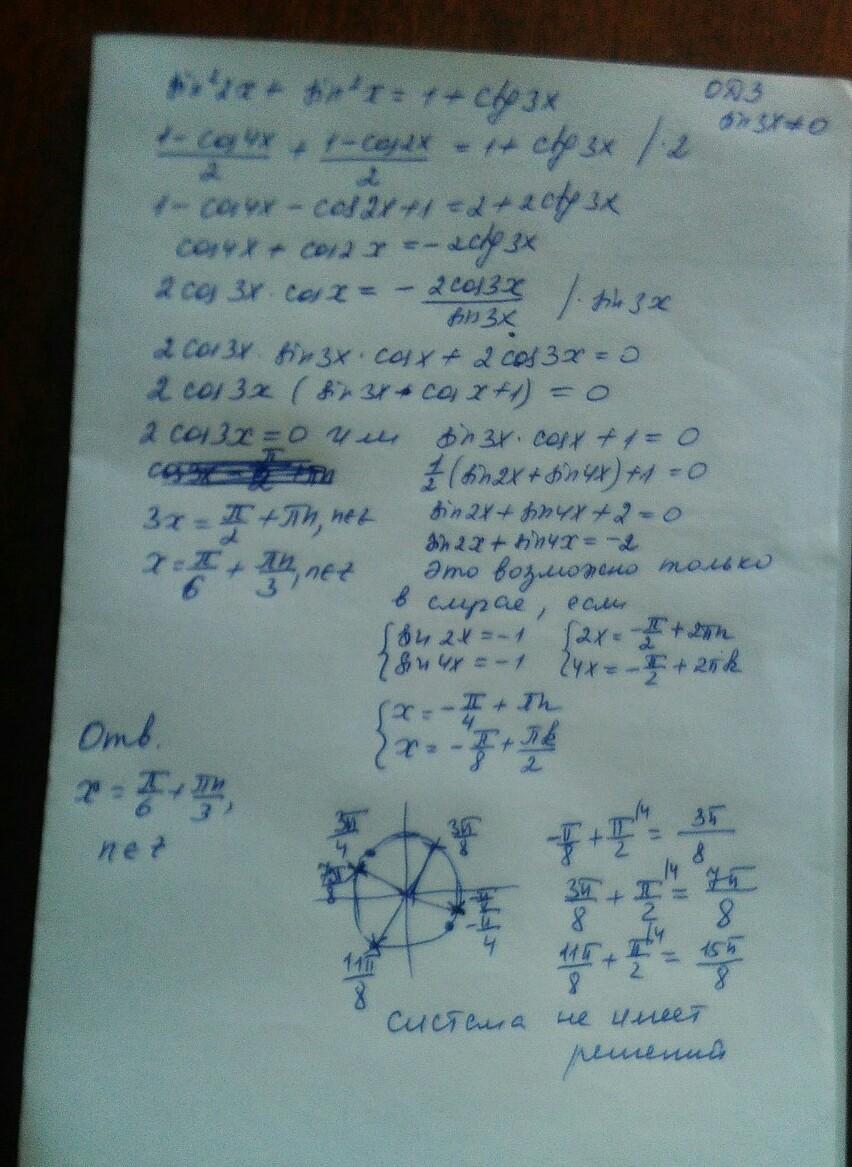 sin²2x + sin²x = 1 + ctg3x
ОДЗ
sin3x≠0
1-cos4x/2 + 1-cos2x/2 = 1 + ctg3x /·2
1-cos4x-cos2x+1 = 2+2ctg3x
cos4x + cos2x = -2ctg3x
2cos3x·cosx = - 2cos3x/sin3x /·sin3x
2cos3x·sin3x·cosx + 2cos3x = 0
2cos3x (sin3x·cosx+1) = 0
2cos3x=0 или
3x = π/2 + πn, n∈z
x = π/6 + πn/3, n∈z
sin3x·cosx + 1 = 0
1/2(sin2x+sin4x)+1=0
sin2x+sin4x+2=0
sin2x+sin4x=-2
это возможно только
в случае, если
{sin2x=-1 {2x=-π/2+2πn
{sin4x=-1 {4x=-π/2+2πk
{x=-π/4+πn
{x=-π/8+πk/2
Отв.
x = π/6 + πn/3,
n∈z
3π/4
3π/8
7π/8
-π/8
-π/4
11π/8
-π/8 + π/2 /4 = 3π/8
3π/8 + π/2 /4 = 7π/8
11π/8 + π/2 /4 = 15π/8
система не имеет
решений